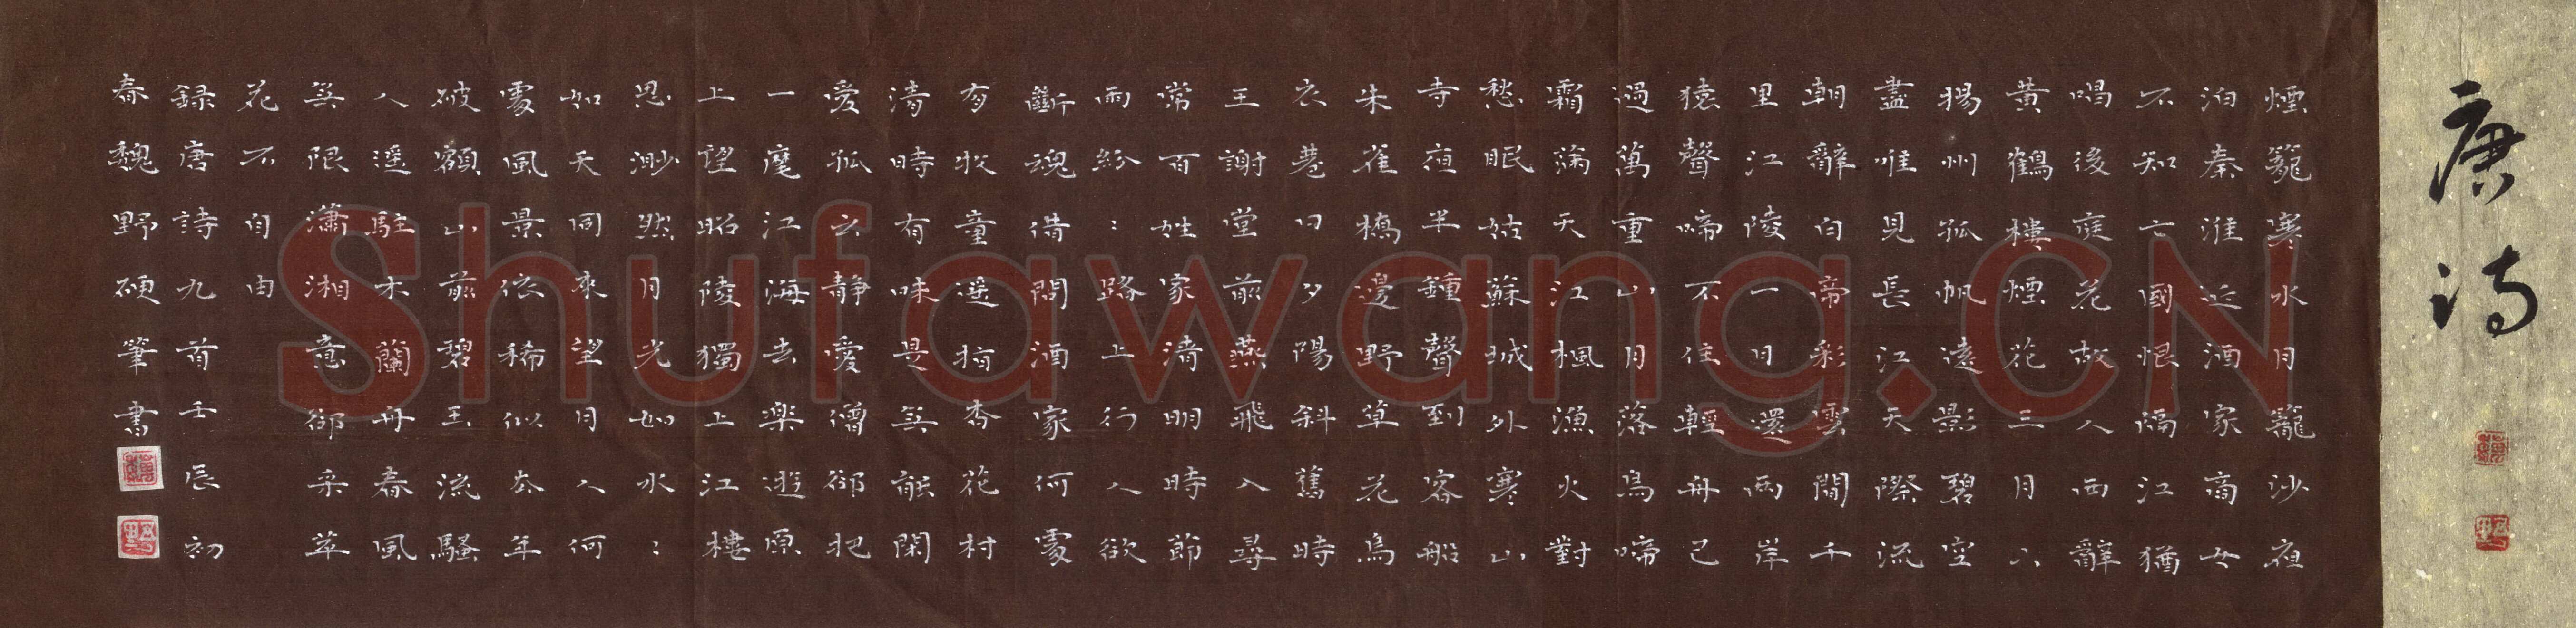 唐诗
煙籠寒水月籠沙夜
泊秦淮近酒家商女
不知亡國恨隔江猶
唱後庭花故人西辭
黄鶴樓煙花三月下
揚州孤帆遠影碧空
盡唯見長江天際流
朝辭白帝彩雲間千
里江陵一日還兩岸
猿聲啼不住輕舟已
過萬重山月落烏啼
霜滿天江楓漁火對
愁眠姑蘇城外寒山
寺夜半鍾聲到客船
朱雀橋邊野草花烏
衣巷口夕陽斜舊時
王謝堂前燕飛入尋
常百姓家清明時節
雨紛:路上行人欲
斷魂借問酒家何處
有牧童遥指杏花村
清時有味是無能閑
愛孤云靜愛僧郤把
一麾江海去樂遊原
上望昭陵獨上江樓
思渺然月光如水:
如天同來望月人何
處風景依稀似去年
破額山前碧玉流騷
人遥駐木蘭舟春風
無限瀟湘意郤采萍
花不自由
録唐詩九首壬辰初
春魏野硬筆書
Shufawang.CN